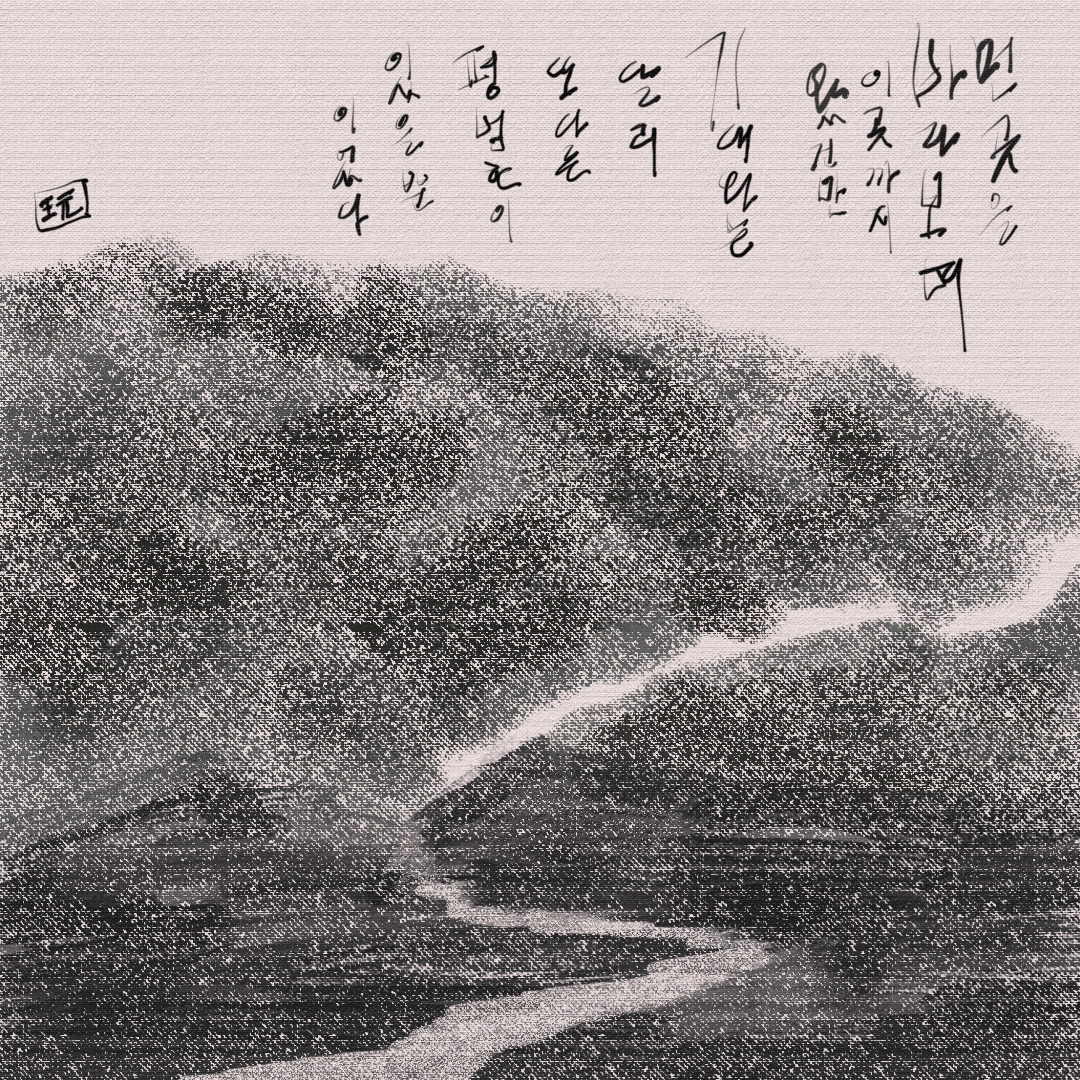 먼곳을
바라보며
이곳까지
왔건만
기대와는
달리
또다른
평범한이
있을뿐
이었다
玩